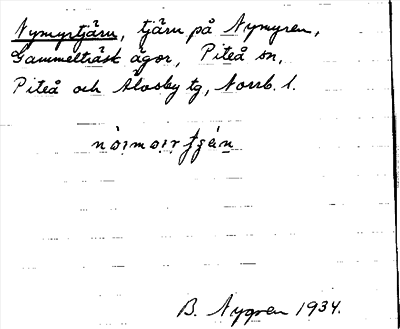 Nymyrtjärn, tjärn på Nymyren,
Gammelträsk ägor, Piteå sn,
Piteå och Älvsby tg, Norrb. l.
B. Nygren 1934.